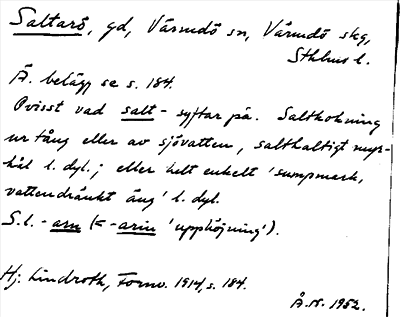 Saltarö, gd, Värmdö sn, Värmdö skg,
Sthlms l.
Ä. belägg se s. 184.
Ovisst vad salt- syftar på. Saltkokning
ur tång eller av sjövatten, salthaltigt
hål l. dyl.; eller helt enkelt 'sumpmark,
vattendränkt äng' l. dyl.
S.l. -arn (< -arin 'upphöjning').
Hj. Lindroth, Fornv. 1914, s. 184.
Å.N. 1952.